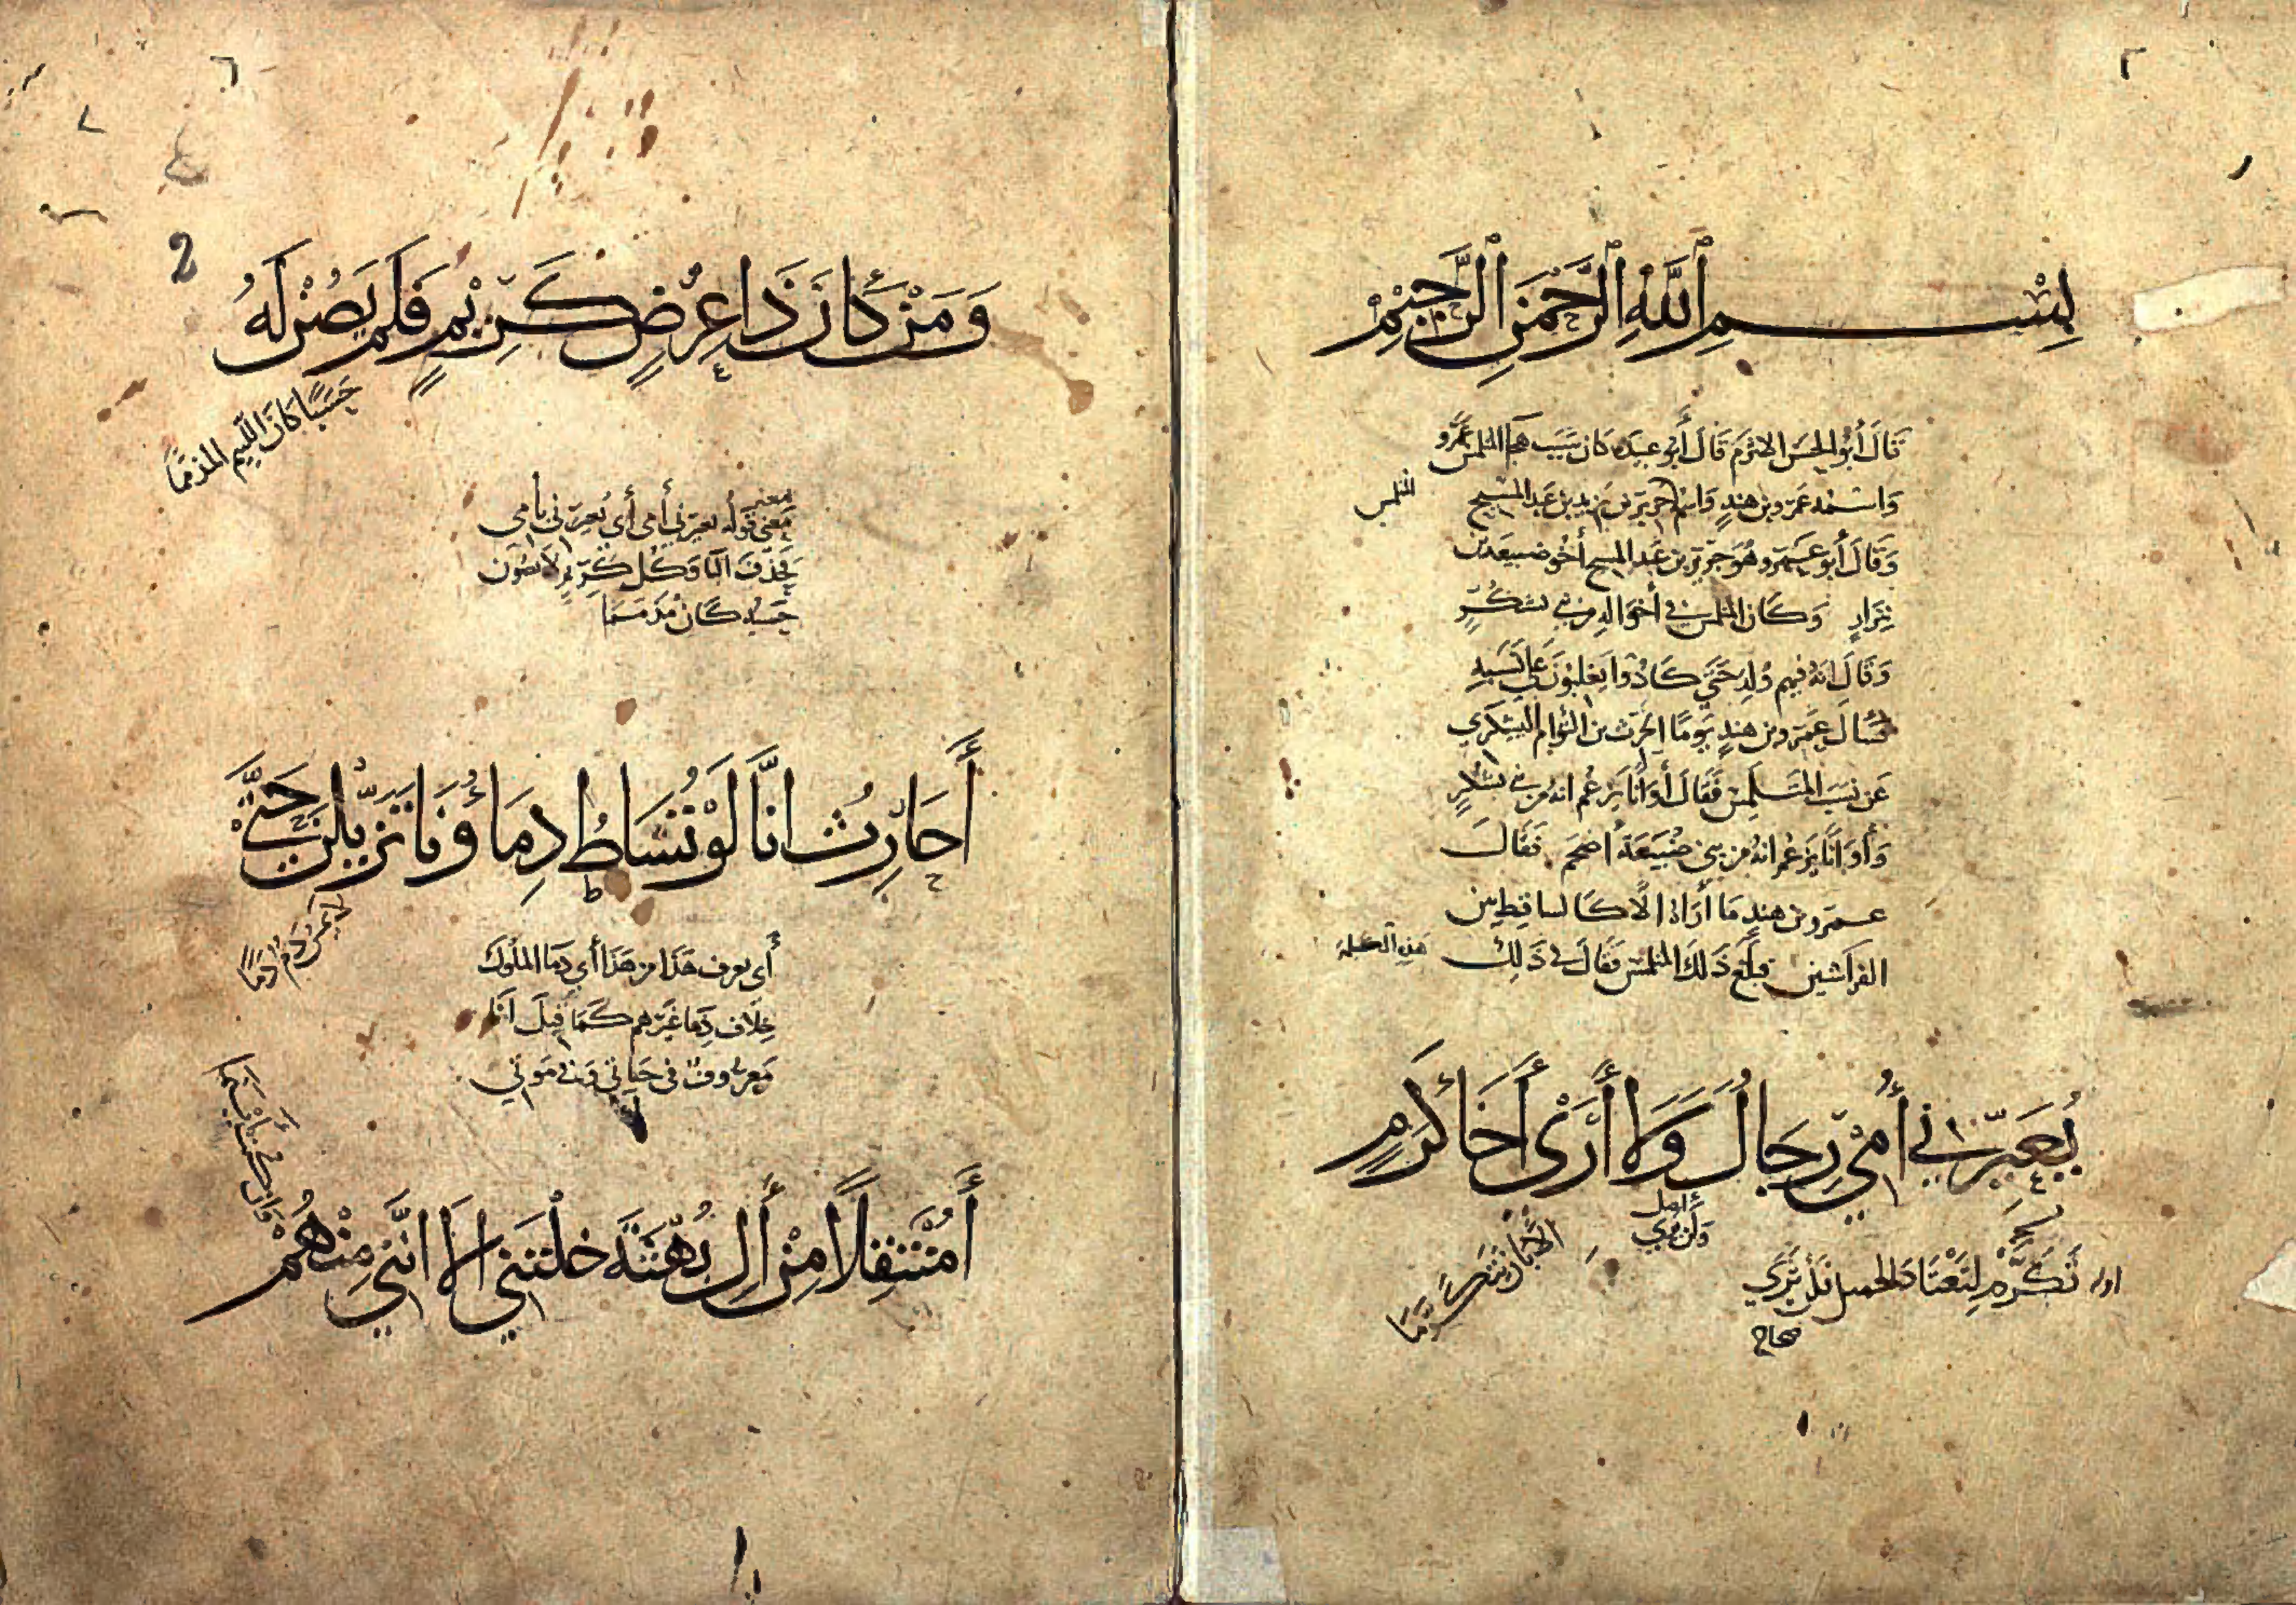 بِسْمِ ٱللَّهِ ٱلرَّحْمَنِ ٱلرَّحِيمِ
قَالَ أَبُو الحَسَنِ الاثرَم قَالَ أَبُو عبيدَه كان سَبَب هجا المتلمس عَمْرو
وَاسْمه عمرو بن هندٍ وَاسْم جرير بن يزيد بن عَبد المَسِيحِ
المتلمس
وَقَالَ أَبو عَمرو هُوَ جَرير بن عَبد المسيح أخُو ضبيعَه بن
نِزَارٍ وَكَان المتلمس في أخوَالِهِ من بني يشكُرٍ
وَقَالَ انهُ فيهم وُلِدَ حَتَّى كَادُوا يَغلبُونَ عَلَى نَسَبِهِ
فَسَال عمرو بن هندٍ يَومًا الحَرث بن التوَام اليشكري
عَن نسَب المتَلَمِس فَقَالَ أَوَانًا يَزعُم انهُ من بني يشكُرٍ
وَأَوَانًا يَزعُم انهُ من بني ضُبَيعَةَ اضجَم فَقَالَ
عمرو بن هندٍ مَا أُرَاهُ الَّا كَالساقِطِ بين
الفِرَاشينِ فبَلَغَ ذَلكَ المتلمس فقَالَ في ذَلِكَ
هذه الكلمة
يُعَيِّرُني أُمِّي رِجَالٌ وَلا أَرَى أَخَا كَرَمٍ
الَّا بِأَن يَتَكَرَّمَا
وَلَن تَرَي
اوله تَكَرَّمْ لِتَعْتَادَ الجميل فَلَن تَرَي
صحاح
وَمَنْ كَانَ ذَا عِرْضٍ كَرِيمٍ فَلَمْ يَصُنْ لَهُ
حَسَبًا كَانَ اللَّئِيم المذمَّمَا
معنى قوله يعيرني أمي أي يُعيرني بأمي
فحَذَفَ البَا وَكُل كَرِيمٍ لا يَصُون
حَسبه كَان مذمّما
أَحَارِثُ انَّا لَوْ تُسَاطُ دِمَاؤُنَا تَزَيَّلْنَ حَتَّى
لَا يَمَسَّ دَمٌ دَمَا
أي يعرف هَذَا من هَذَا أي دمَا المُلُوك
خِلَاف دِمَا غَيرهم كَمَا قيلَ أنَا
مَعرُوفٌ في حَيَاتي وَفي مَوتي
أَمُنْتَفِلًا مِنْ آلِ بُهْثَةَ خِلْتَنِي الَا انَّنِي مِنْهُمْ
وَان كُنْتُ أَيْنَمَا